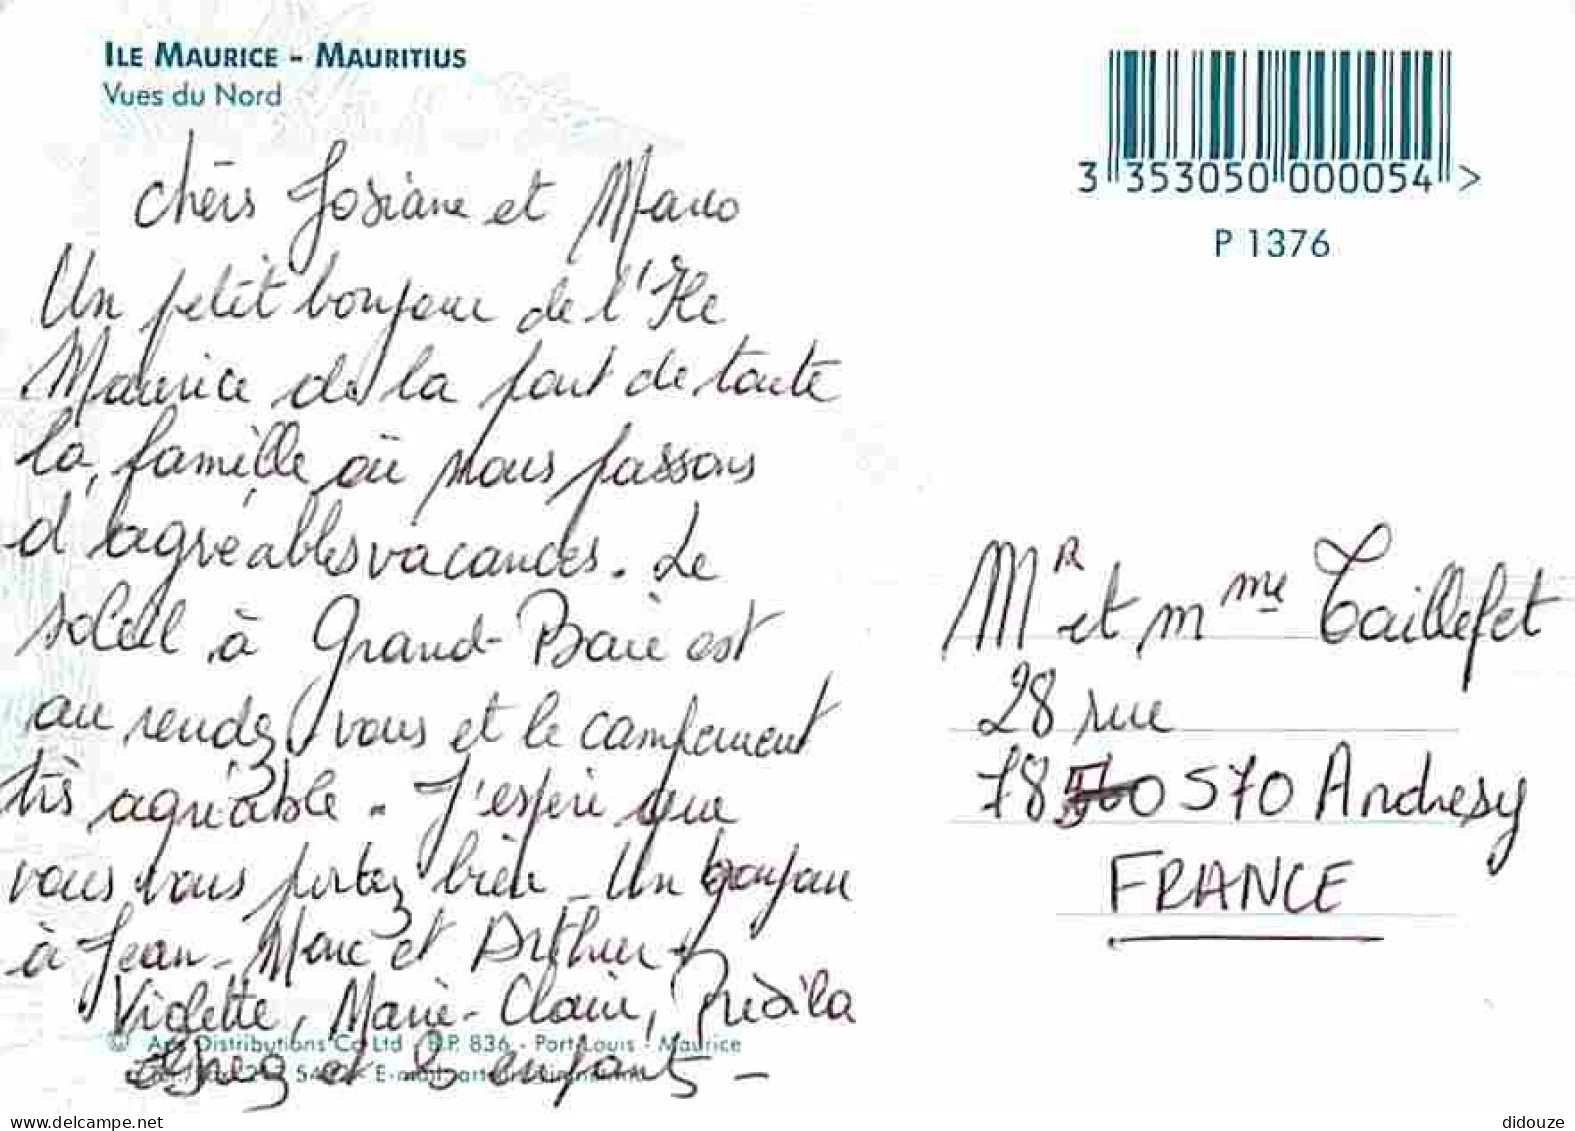 ILE MAURICE - MAURITIUS
Vues du Nord
3 353050 000054 >
P 1376
Chers Josiane et Marco
Un petit bonjour de l'Ile
Maurice de la part de toute
la famille où nous passons
d'agréables vacances. Le
soleil à Grand-Baie est
au rendez vous et le campement
très agréable. J'espère que
vous vous portez bien. Un bonjour
à Jean-Marc et Arthur
Violette, Marie-Claire,
et 3 enfants -
MR et Mme Taillefet
28 rue
78 570 Andresy
FRANCE
© Distributions Co Ltd - B.P. 836 - Port-Louis - Maurice
delcampe.net
didouze